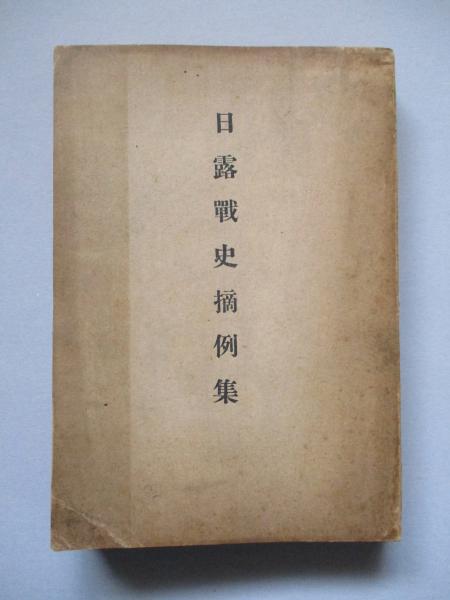 日露戰史摘例集